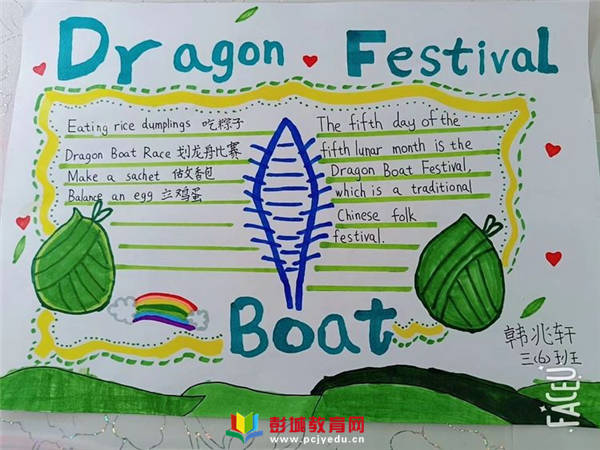 Dragon Festival
Eating rice dumplings 吃粽子
Dragon Boat Race 划龙舟比赛
Make a sachet 做香包
Balance an egg 立鸡蛋
The fifth day of the
fifth lunar month is the
Dragon Boat Festival,
which is a traditional
Chinese folk
festival.
Boat
韩兆轩
三(6)班
FACEU
彭城教育网
www.pcjyedu.cn